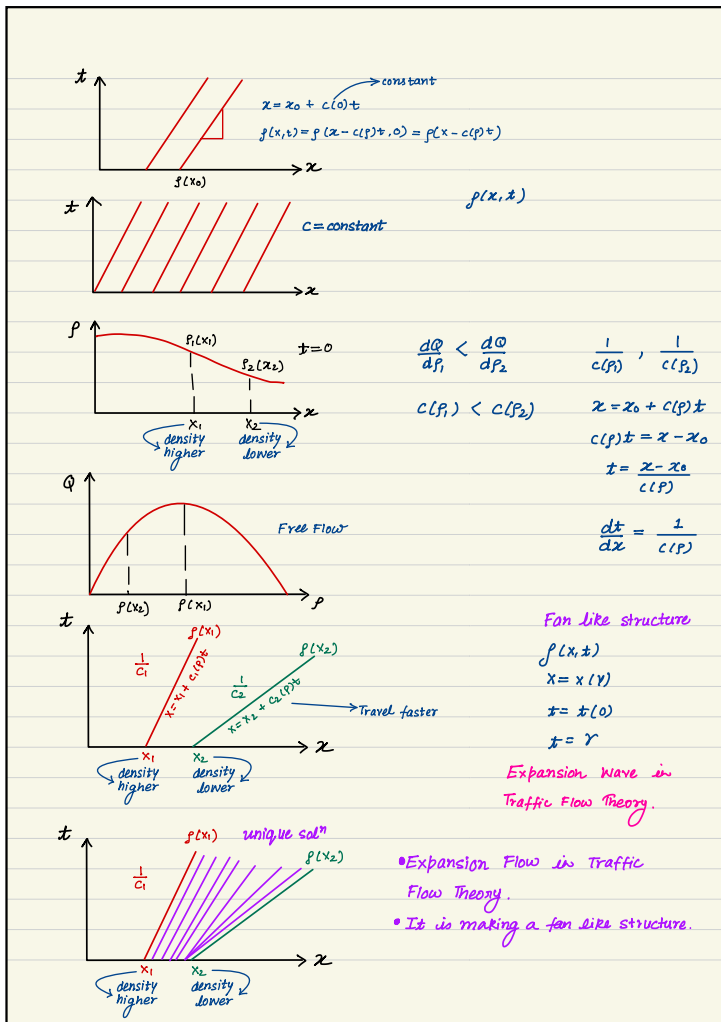 t
constant
x = x₀ + c(0)t
ρ(x,t) = ρ(x-c(ρ)t,0) = ρ(x-c(ρ)t)
x
ρ(x₀)
t
ρ(x,t)
C = constant
x
ρ
ρ₁(x₁)
t=0
ρ₂(x₂)
x
x₁
x₂
density higher
density lower
dQ/dρ₁ < dQ/dρ₂
1/c(ρ₁) , 1/c(ρ₂)
c(ρ₁) < c(ρ₂)
x = x₀ + c(ρ)t
c(ρ)t = x - x₀
t = x - x₀/c(ρ)
dt/dx = 1/c(ρ)
Q
Free Flow
ρ(x₂)
ρ(x₁)
ρ
t
ρ(x₁)
1/C₁
x = x₁ + c₁(ρ)t
ρ(x₂)
1/C₂
x = x₂ + c₂(ρ)t
Travel faster
x
x₁
x₂
density higher
density lower
Fan like structure
ρ(x,t)
x = x(r)
t = t(0)
t = r
Expansion Wave in
Traffic Flow Theory.
t
ρ(x₁)
unique solⁿ
ρ(x₂)
1/C₁
x
x₁
x₂
density higher
density lower
•Expansion Flow in Traffic
Flow Theory.
• It is making a fan like structure.